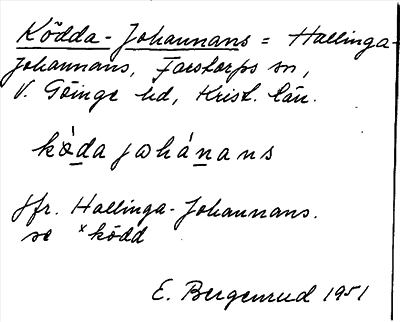 Ködda-Johannans = Hallinga-
Johannans, Farstorps sn,
V. Göinge hd, Krist. län.
kö̀da johánans
Jfr. Hallinga-Johannans.
se ˣködd
E. Bergenrud 1951